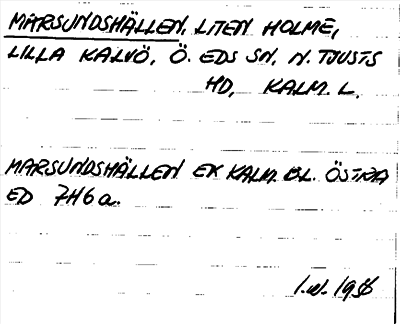 MARSUNDSHÄLLEN. LITEN HOLME,
LILLA KALVÖ, Ö. EDS SN, N. TJUSTS
HD, KALM. L.
MARSUNDSHÄLLEN EK KALM. BL. ÖSTRA
ED 7H6a.
1956